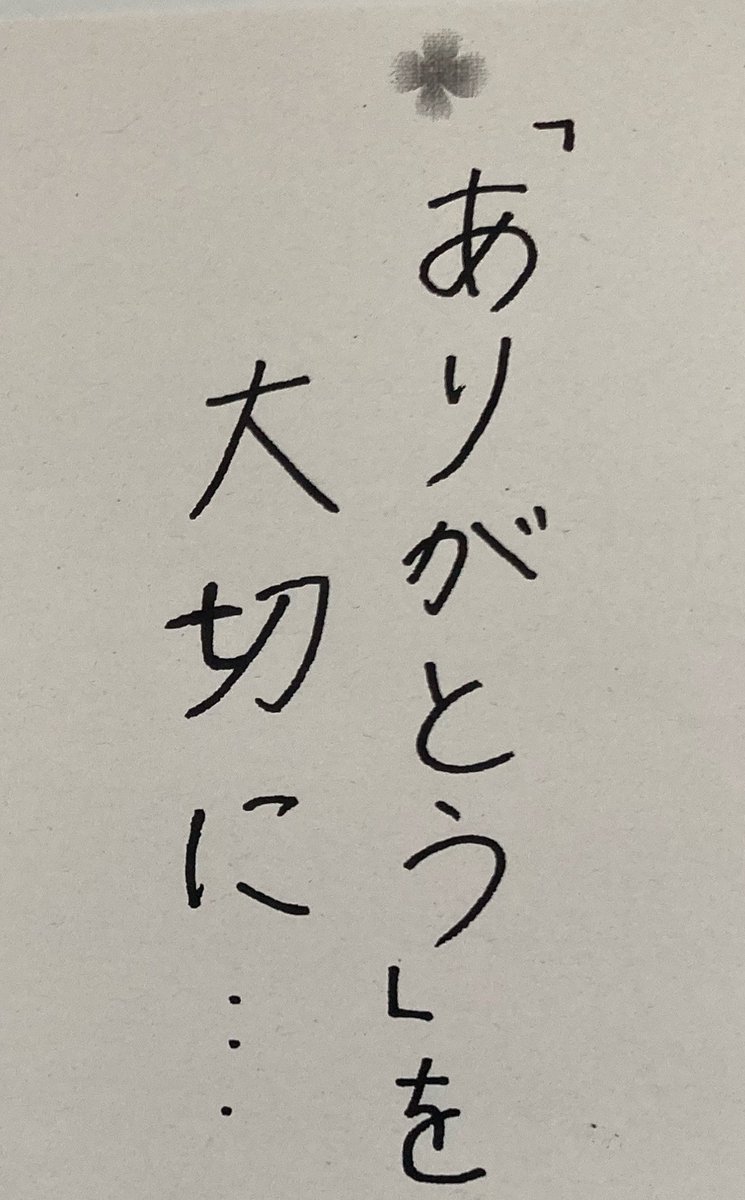 「ありがとう」を
大切に…